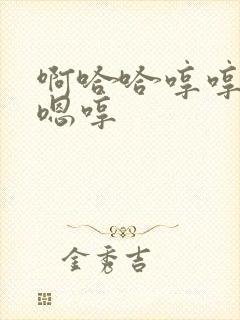 啊哈哈哼哼
嗯哼
金秀吉